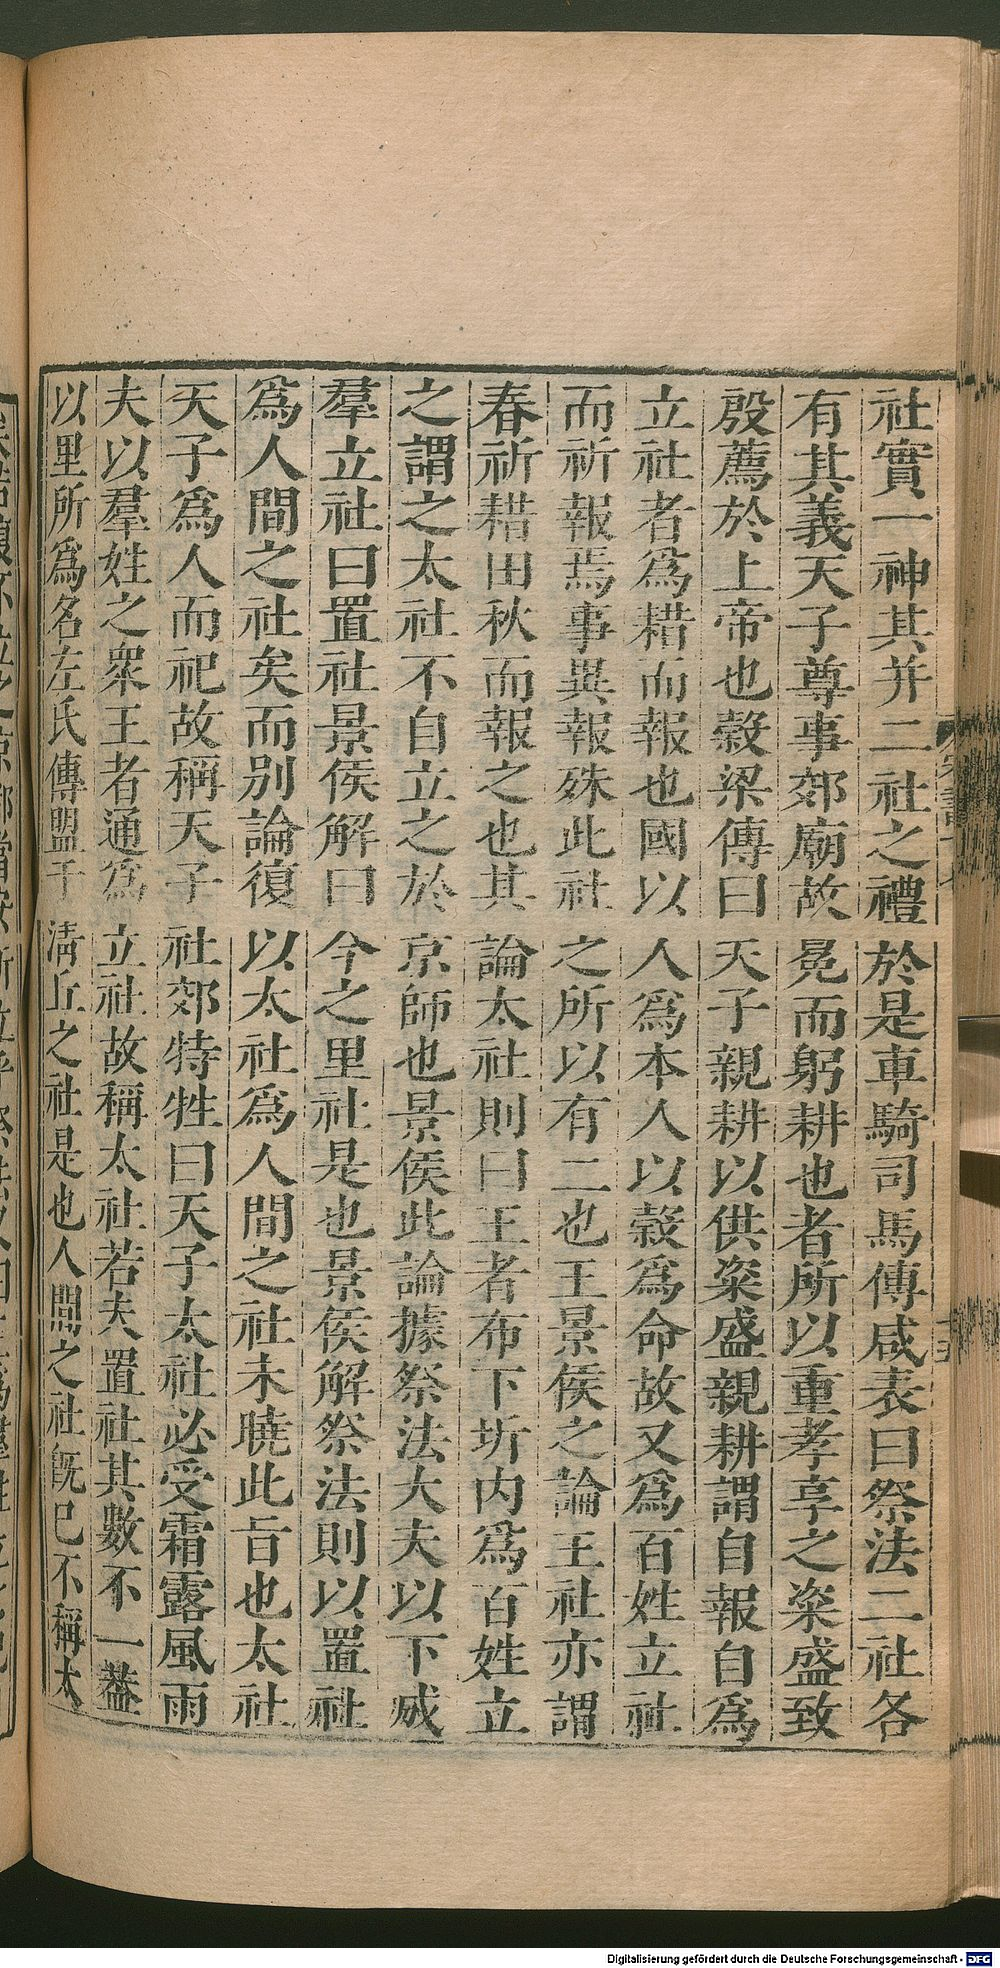 社實一神其并二社之禮於是車騎司馬傅咸表曰祭法二社各
有其義天子尊事郊廟故冕而躬耕也者所以重孝享之粢盛致
殷薦於上帝也穀梁傳曰天子親耕以供粢盛親耕謂自報自為
立社者為耤而報也國以人為本人以穀為命故又為百姓立社
而祈報焉事異報殊此社之所以有二也王景侯之論王社亦謂
春祈耤田秋而報之也其論太社則曰王者布下圻内為百姓立
之謂之太社不自立之於京師也景侯此論據祭法大夫以下成
羣立社曰置社景侯解曰今之里社是也景侯解祭法則以置社
為人間之社矣而别論復以太社為人間之社未曉此旨也太社
天子為人而祀故稱天子社郊特牲曰天子太社必受霜露風雨
夫以羣姓之衆王者通為立社故稱太社若夫置社其數不一葢
以里所為名左氏傳盟于清丘之社是也人間之社既已不稱太
Digitalisierung gefördert durch die Deutsche Forschungsgemeinschaft - DFG